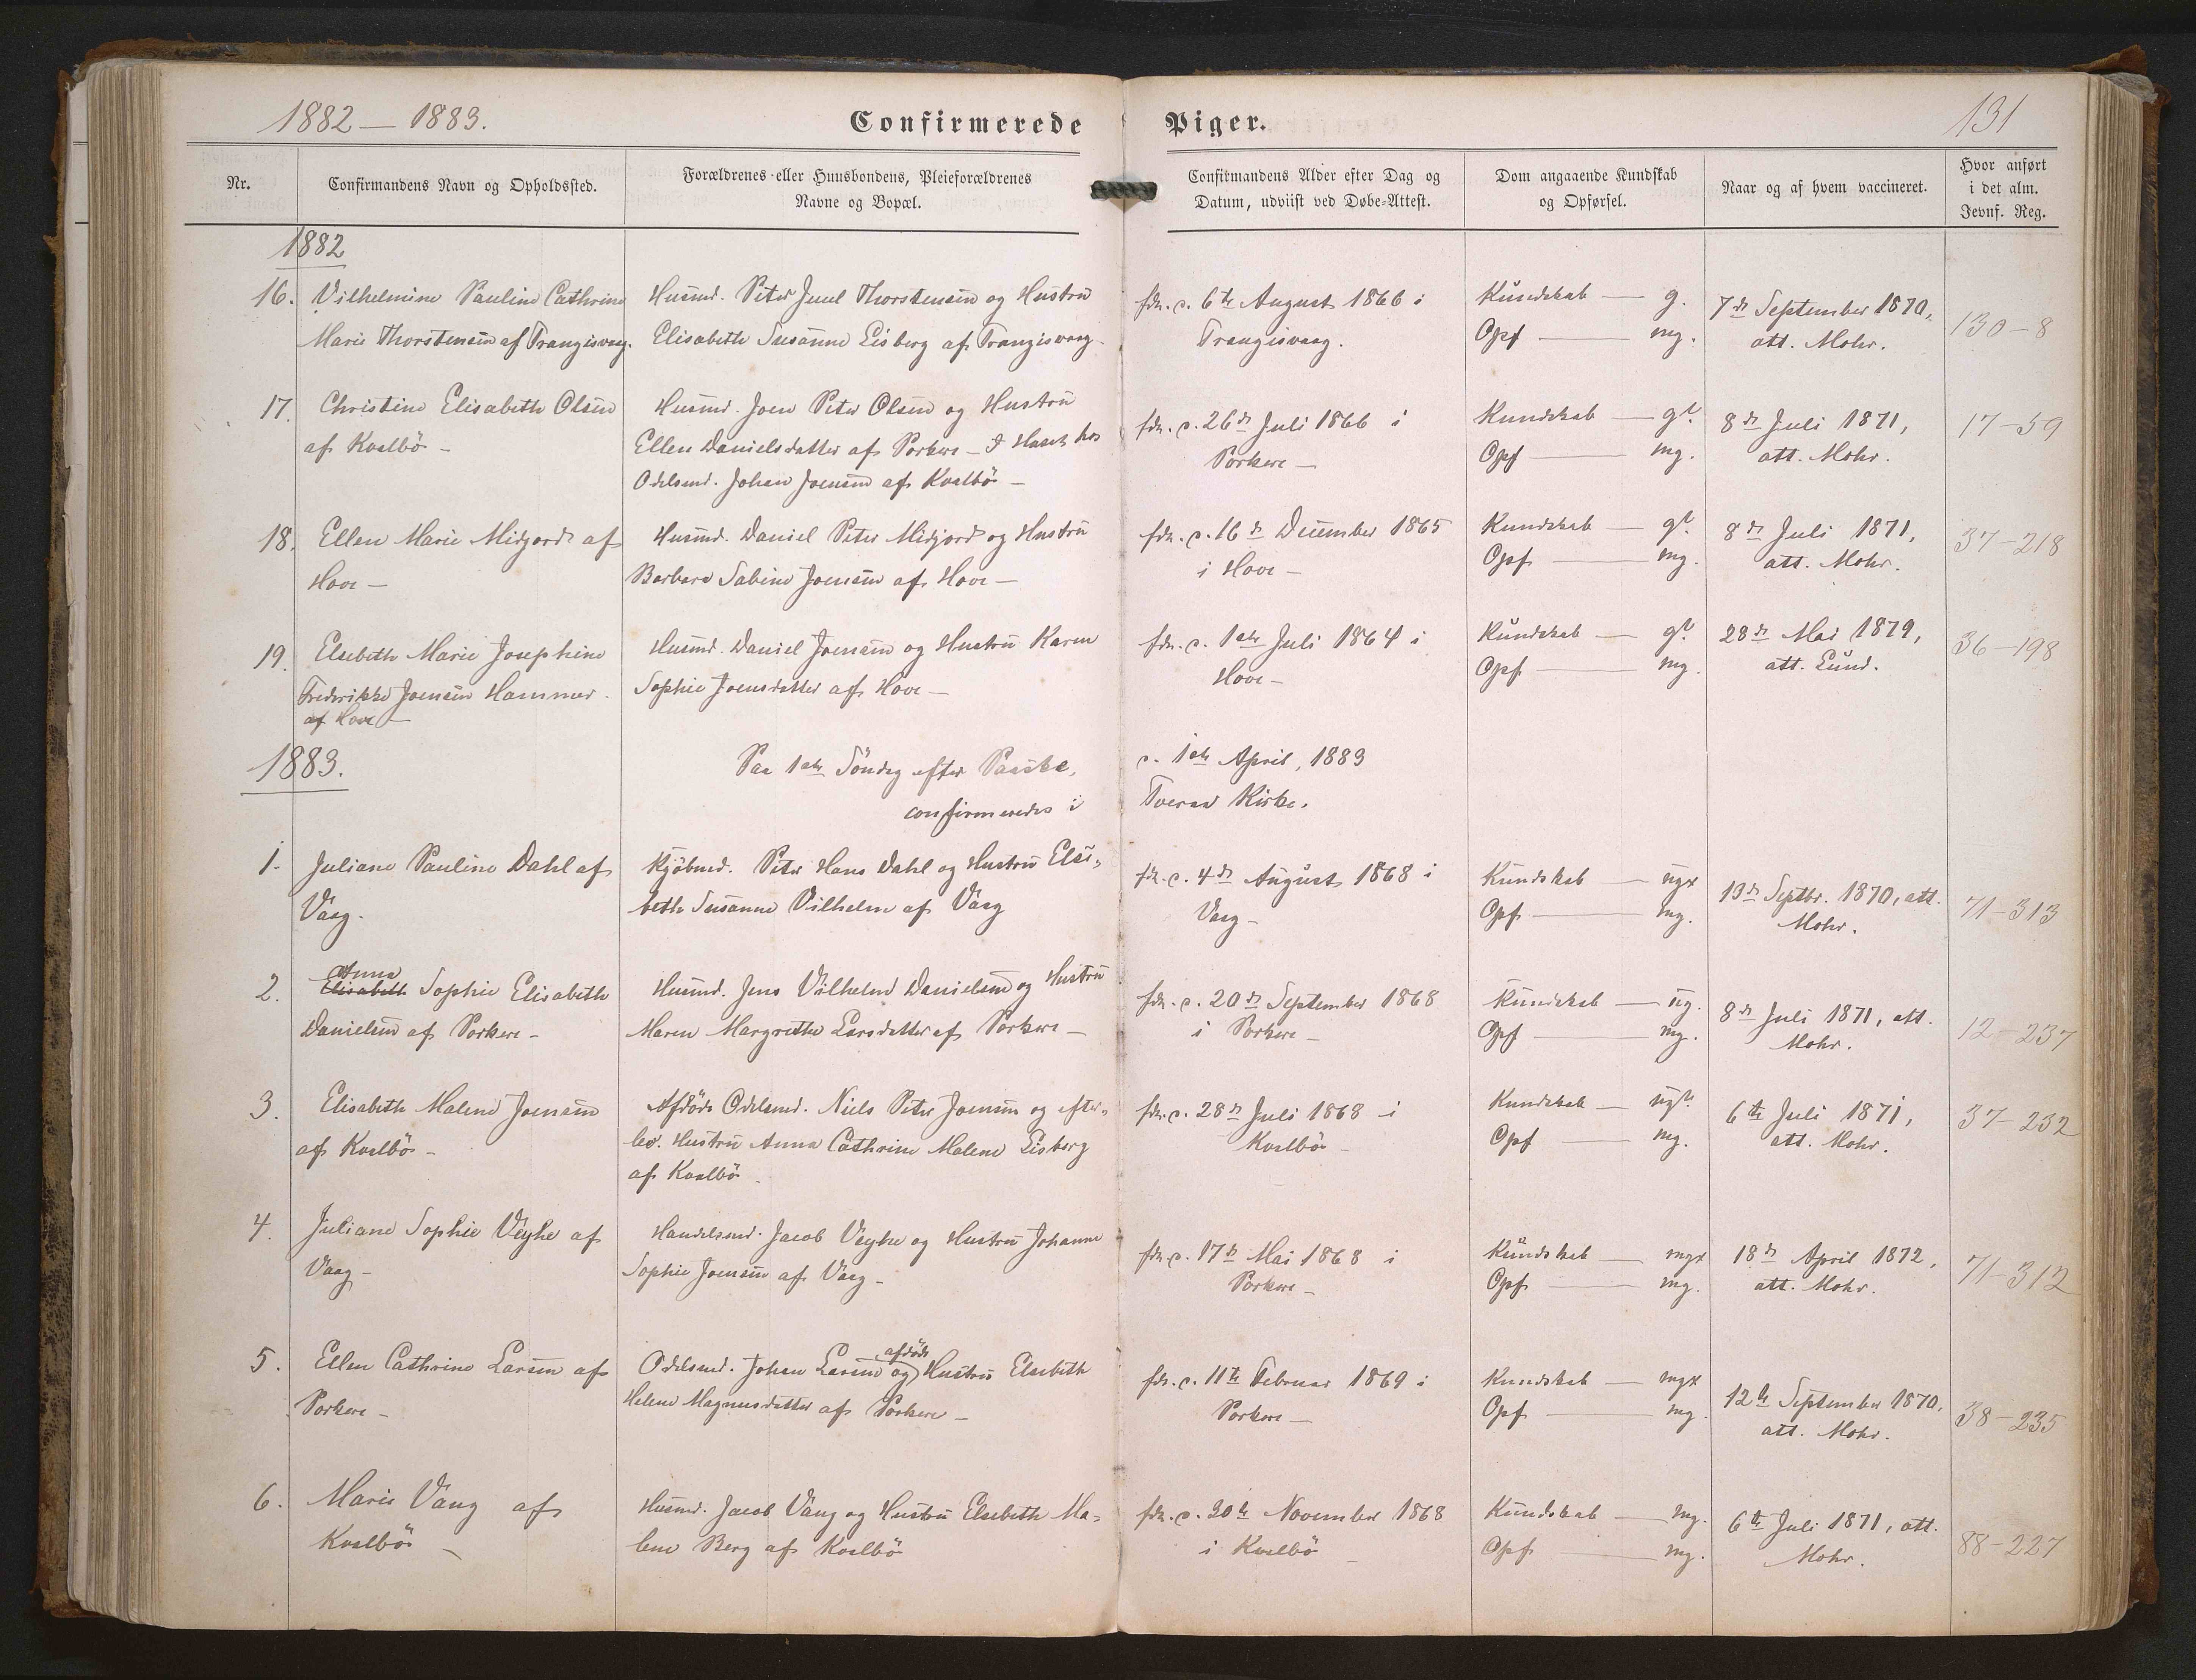 1882 — 1883.
Confirmerede Piger.
131
Nr.
Confirmandens Navn og Opholdssted.
Forældrenes eller Huusbondens, Pleieforældrenes
Navne og Bopæl.
Confirmandens Alder efter Dag og
Datum, udviist ved Døbe-Attest.
Dom angaaende Kundskab
og Opførsel.
Naar og af hvem vaccineret.
Hvor anført
i det alm.
Jevnf. Reg.
1882
16. Vilhelmine Pauline Cathrine
Marie Thorstensen af Trangisvaag.
Husmd. Peter Juul Thorstensen og Hustru
Elisabeth Susanne Eisberg af Trangisvaag
fdt. d. 6te August 1866 i
Trangisvaag.
Kundskab — g.
Opf — mg.
7de September 1870,
att. Mohr.
130-8
17. Christine Elisabeth Olsen
af Kvalbö -
Husmd. Joen Peter Olsen og Hustru
Ellen Danielsdatter af Porkere - I Huset hos
Odelsmd. Johan Joensen af Kvalbö -
fdt. d. 26de Juli 1866 i
Porkere -
Kundskab — g?
Opf — mg.
8de Juli 1871,
att. Mohr.
17-59
18. Ellen Marie Midjord af
Hove -
Husmd. Daniel Peter Midjord og Hustru
Barbara Sabine Joensen af Hove -
fdt. d. 16de December 1865
i Hove -
Kundskab — g?
Opf — mg.
8de Juli 1871,
att. Mohr.
37-218
19. Elsebeth Marie Josephine
Frederikke Joensen Hammer.
af Hove -
Husmd. Daniel Joensen og Hustru Karen
Sophie Joensdatter af Hove -
fdt. d. 1ste Juli 1864 i
Hove -
Kundskab — g?
Opf — mg.
28de Mai 1879,
att. Lund.
36-198
1883.
Paa 1ste Söndag efter Paaske,
d. 1ste April, 1883
confirmeredes i
Tveraa Kirke.
1. Juliane Pauline Dahl af
Vaag.
Kjöbmd. Peter Hans Dahl og Hustru Else-
beth Susanne Vilhelm af Vaag
fdt. d. 4de August 1868 i
Vaag -
Kundskab — ugx
Opf — mg.
13de Septbr. 1870, att.
Mohr.
71-313
2. Anna
Elisabeth Sophie Elisabeth
Danielsen af Porkere -
Husmd. Jens Vilhelm Danielsen og Hustru
Maren Margrethe Larsdatter af Porkere -
fdt. d. 20de September 1868
i Porkere -
Kundskab — ug.
Opf — mg.
8de Juli 1871, att.
Mohr.
12-237
3. Elisabeth Malene Joensen
af Kvalbö -
Afdöde Odelsmd. Niels Peter Joensen og efter-
lev. Hustru Anna Cathrine Malene Eisberg
af Kvalbö.
fdt. d. 28de Juli 1868 i
Kvalbö -
Kundskab — ug?
Opf — mg.
6te Juli 1871,
att. Mohr.
37-232
4. Juliane Sophie Veyhe af
Vaag -
Handelsmd. Jacob Veyhe og Hustru Johanne
Sophie Joensen af Vaag -
fdt. d. 17de Mai 1868 i
Porkere -
Kundskab — mgx
Opf — mg.
18de April 1872,
att. Mohr.
71-312
5. Ellen Cathrine Larsen af
Porkere -
Odelsmd. Johan Larsen og afdöde Hustru Elsebeth
Helene Magnusdatter af Porkere -
fdt. d. 11te Februar 1869 i
Porkere -
Kundskab — mgx
Opf — mg.
12te September 1870,
att. Mohr.
38-235
6. Marie Vang af
Kvalbö -
Husmd. Jacob Vang og Hustru Elsebeth Ma-
lene Berg af Kvalbö
fdt. d. 30te November 1868
i Kvalbö -
Kundskab — mg.
Opf — mg.
6te Juli 1871, att.
Mohr.
88-227